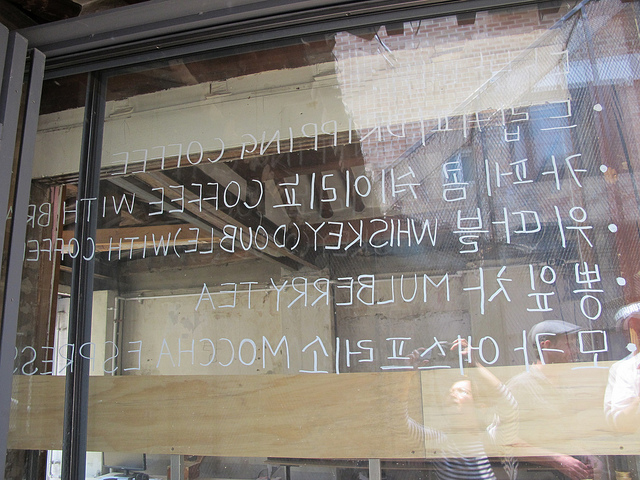 • 드립커피 DRIPPING COFFEE
• 카페 COFFEE WITH
• 위따블 WHISKEY(DOUBLE)WITH COFFEE
• 뽕잎차 MULBERRY TEA
• 모카에스프레소 MOCCHA ESPRESS